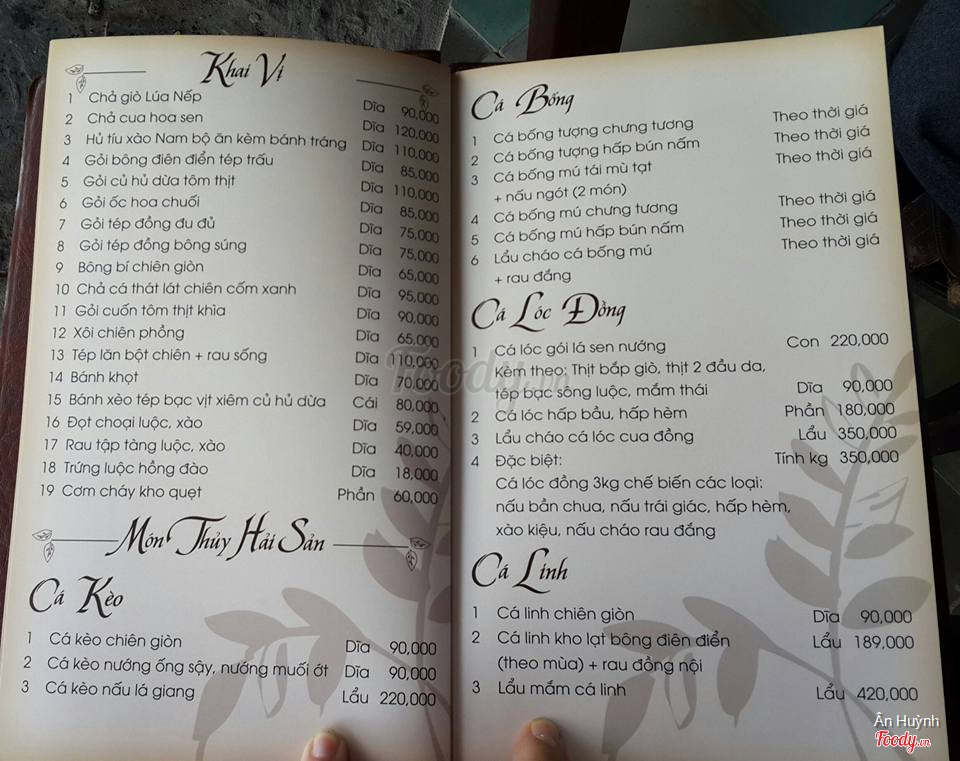 Khai Vị
1 Chả giò Lúa Nếp Dĩa 90,000
2 Chả cua hoa sen Dĩa 120,000
3 Hủ tíu xào Nam bộ ăn kèm bánh tráng Dĩa 110,000
4 Gỏi bông điên điển tép trấu Dĩa 85,000
5 Gỏi củ hủ dừa tôm thịt Dĩa 110,000
6 Gỏi ốc hoa chuối Dĩa 85,000
7 Gỏi tép đồng đu đủ Dĩa 75,000
8 Gỏi tép đồng bông súng Dĩa 75,000
9 Bông bí chiên giòn Dĩa 65,000
10 Chả cá thát lát chiên cốm xanh Dĩa 95,000
11 Gỏi cuốn tôm thịt khìa Dĩa 90,000
12 Xôi chiên phồng Dĩa 65,000
13 Tép lăn bột chiên + rau sống Dĩa 110,000
14 Bánh khọt Dĩa 70,000
15 Bánh xèo tép bạc vịt xiêm củ hủ dừa Cái 80,000
16 Đọt choại luộc, xào Dĩa 59,000
17 Rau tập tàng luộc, xào Dĩa 40,000
18 Trứng luộc hồng đào Dĩa 18,000
19 Cơm cháy kho quẹt Phần 60,000
Món Thủy Hải Sản
Cá Kèo
1 Cá kèo chiên giòn Dĩa 90,000
2 Cá kèo nướng ống sậy, nướng muối ớt Dĩa 90,000
3 Cá kèo nấu lá giang Lẩu 220,000
Cá Bống
1 Cá bống tượng chưng tương Theo thời giá
2 Cá bống tượng hấp bún nấm Theo thời giá
3 Cá bống mú tái mù tạt Theo thời giá
+ nấu ngót (2 món)
4 Cá bống mú chưng tương Theo thời giá
5 Cá bống mú hấp bún nấm Theo thời giá
6 Lẩu cháo cá bống mú Theo thời giá
+ rau đắng
Cá Lóc Đồng
1 Cá lóc gói lá sen nướng Con 220,000
Kèm theo: Thịt bắp giò, thịt 2 đầu da,
tép bạc sông luộc, mắm thái Dĩa 90,000
2 Cá lóc hấp bầu, hấp hèm Phần 180,000
3 Lẩu cháo cá lóc cua đồng Lẩu 350,000
4 Đặc biệt: Tính kg 350,000
Cá lóc đồng 3kg chế biến các loại:
nấu bần chua, nấu trái giác, hấp hèm,
xào kiệu, nấu cháo rau đắng
Cá Linh
1 Cá linh chiên giòn Dĩa 90,000
2 Cá linh kho lạt bông điên điển Lẩu 189,000
(theo mùa) + rau đồng nội
3 Lẩu mắm cá linh Lẩu 420,000
Foody.vn
Ân Huỳnh
Foody.vn